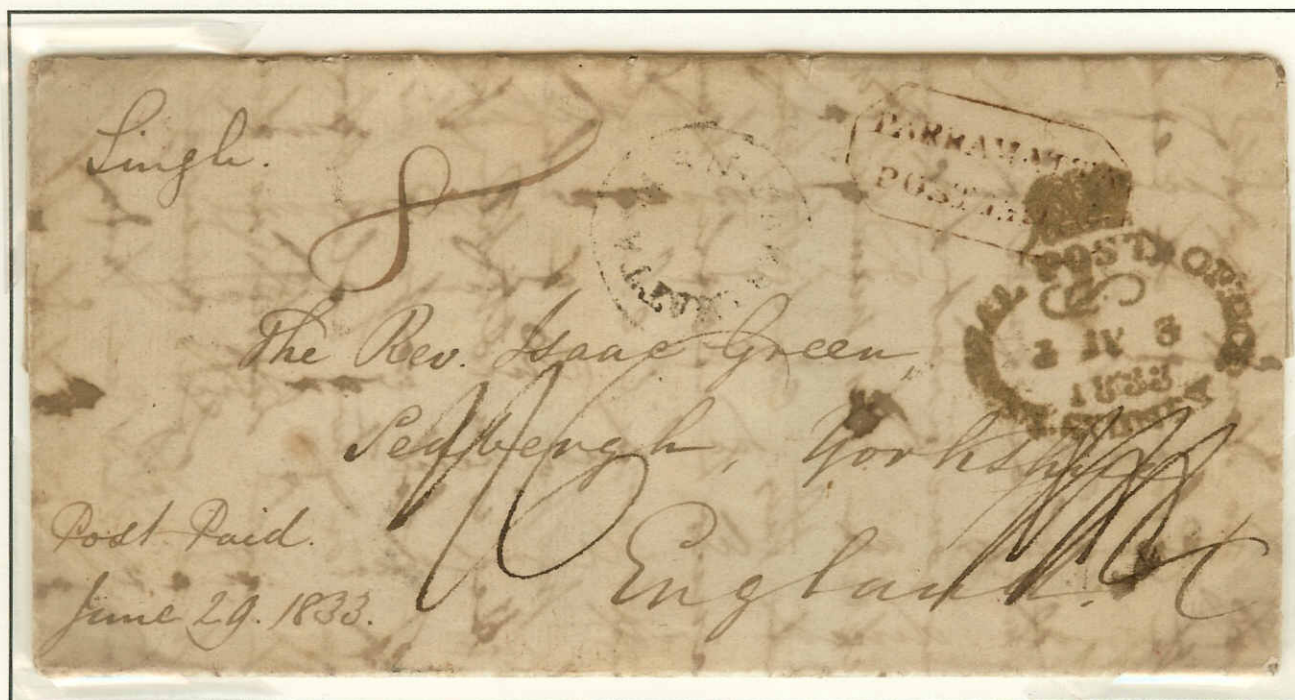 Single.
8
PARRAMATTA
POST
POST OFFICE
JY 3
1833
SYDNEY
The Rev. Isaac Green,
Sedbergh, Yorkshire
England.
Post Paid.
June 29. 1833.